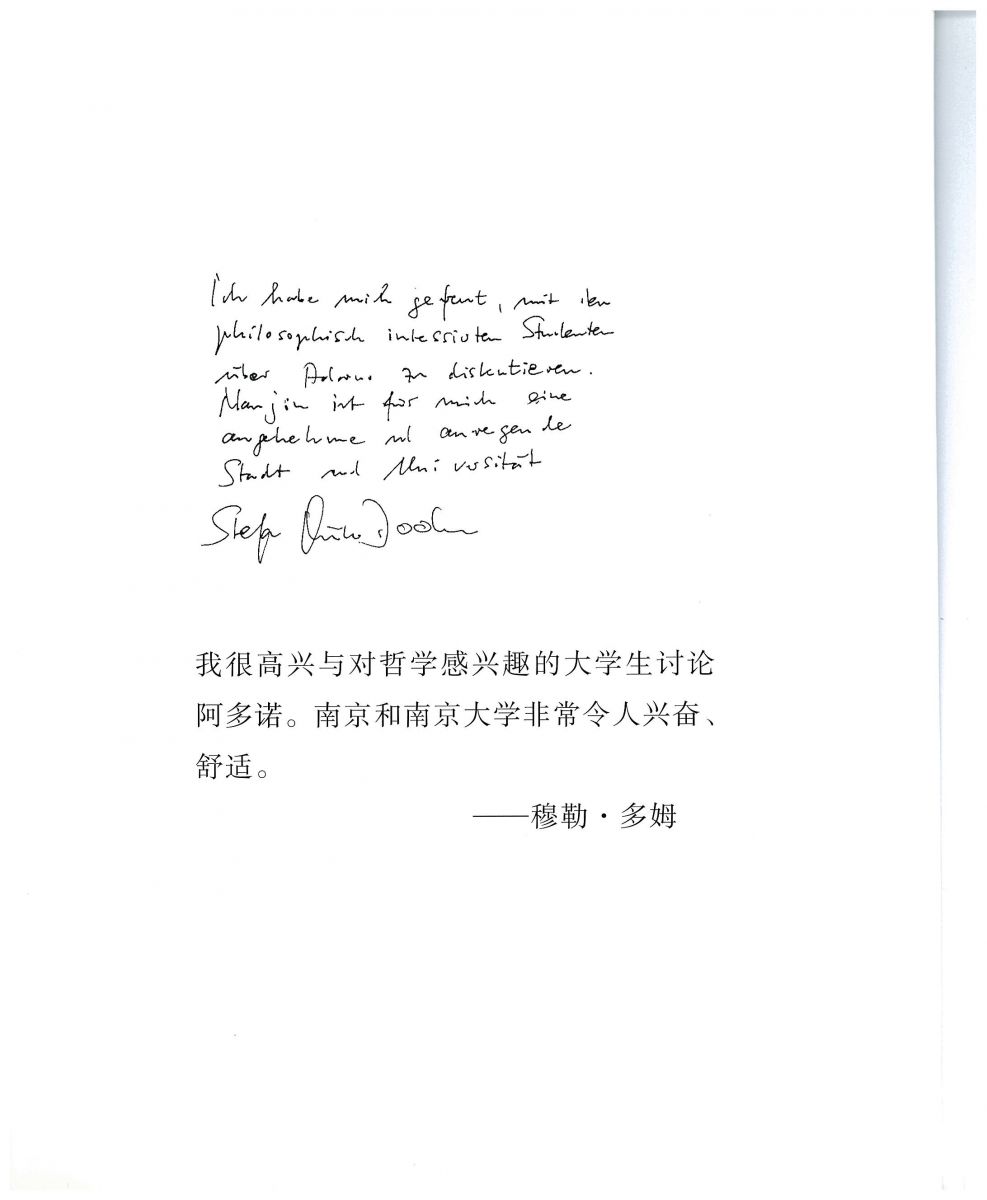 Ich habe mich gefreut, mit den
philosophisch interessierten Studenten
über Adorno zu diskutieren.
Nanjin ist für mich eine
angenehme und anregende
Stadt und Universität
Stefan Müller-Doohm
我很高兴与对哲学感兴趣的大学生讨论
阿多诺。南京和南京大学非常令人兴奋、
舒适。
——穆勒·多姆